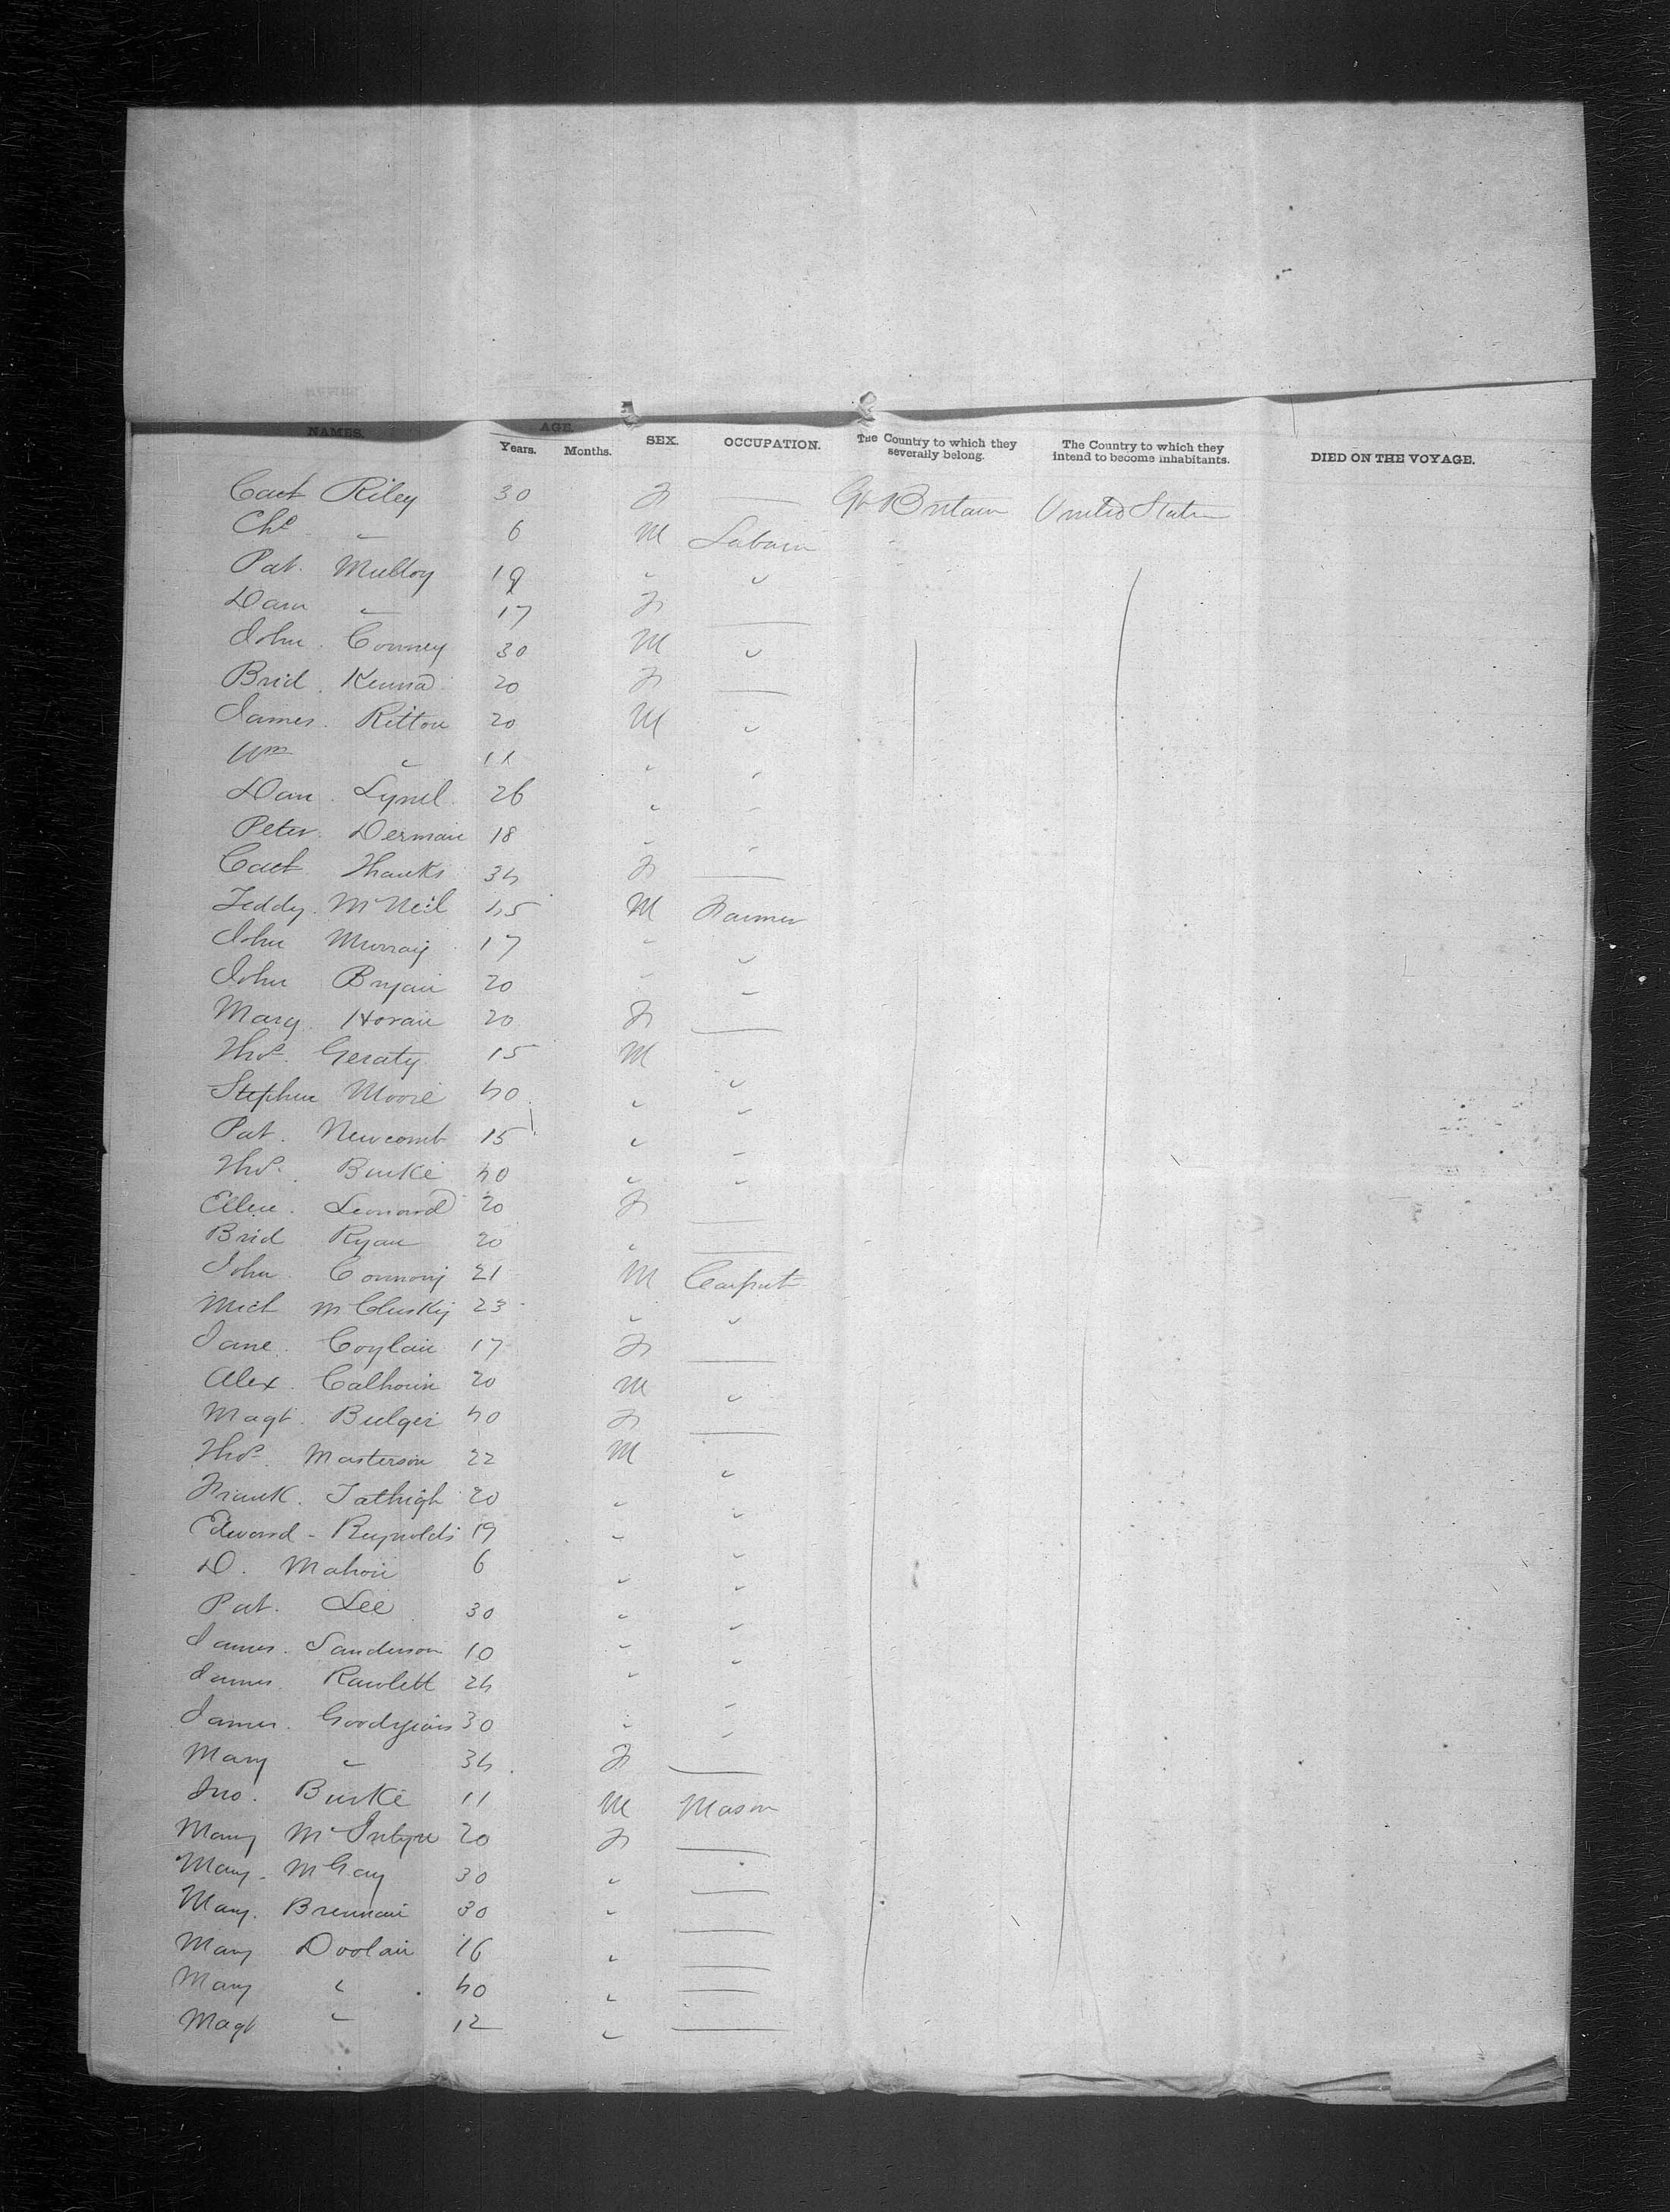 NAMES. AGE. SEX. OCCUPATION. The Country to which they severally belong. The Country to which they intend to become inhabitants. DIED ON THE VOYAGE.
Years. Months.
Cact Riley 30 F — Gt Britain United States
Chs " 6 M Labour
Pat. Mulloy 19 " "
Dam " 17 F —
John. Conney 30 M "
Brid. Kennad 20 F —
James. Ritton 20 M "
Wm " 11 " "
Dan. Lynel. 26 " "
Peter. Dermain 18 " "
Cact Thanks 34 F —
Teddy. McNeil 45 M Farmer
John Murray 17 " "
John Bryan 20 " "
Mary. Horan 20 F —
Thos. Geraty 15 M "
Stephen Moore 40 " "
Pat. Newcomb 15 " "
Thos. Burke 40 " "
Ellen. Leonard 20 F —
Brid Ryan 20 " —
John Connory 21 M Carpnt
Mich McClusky 23 " "
Jane. Coylan 17 F —
Alex. Calhoun 20 M "
Magt. Bulger 40 F —
Thos. Masterson 22 M "
Frank. Tathigh 20 " "
Edward - Reynolds 19 " "
D. Mahon 6 " "
Pat. Lee 30 " "
James. Sanderson 10 " "
James. Rawlett 24 " "
James. 30 " "
Mary " 34 F —
Jno. Burke 11 M Mason
Mary McIntyre 20 F —
Mary. McGay 30 " —
Mary. Brennan 30 " —
Mary Doolan 16 " —
Mary " 40 " —
Magt " 12 " —